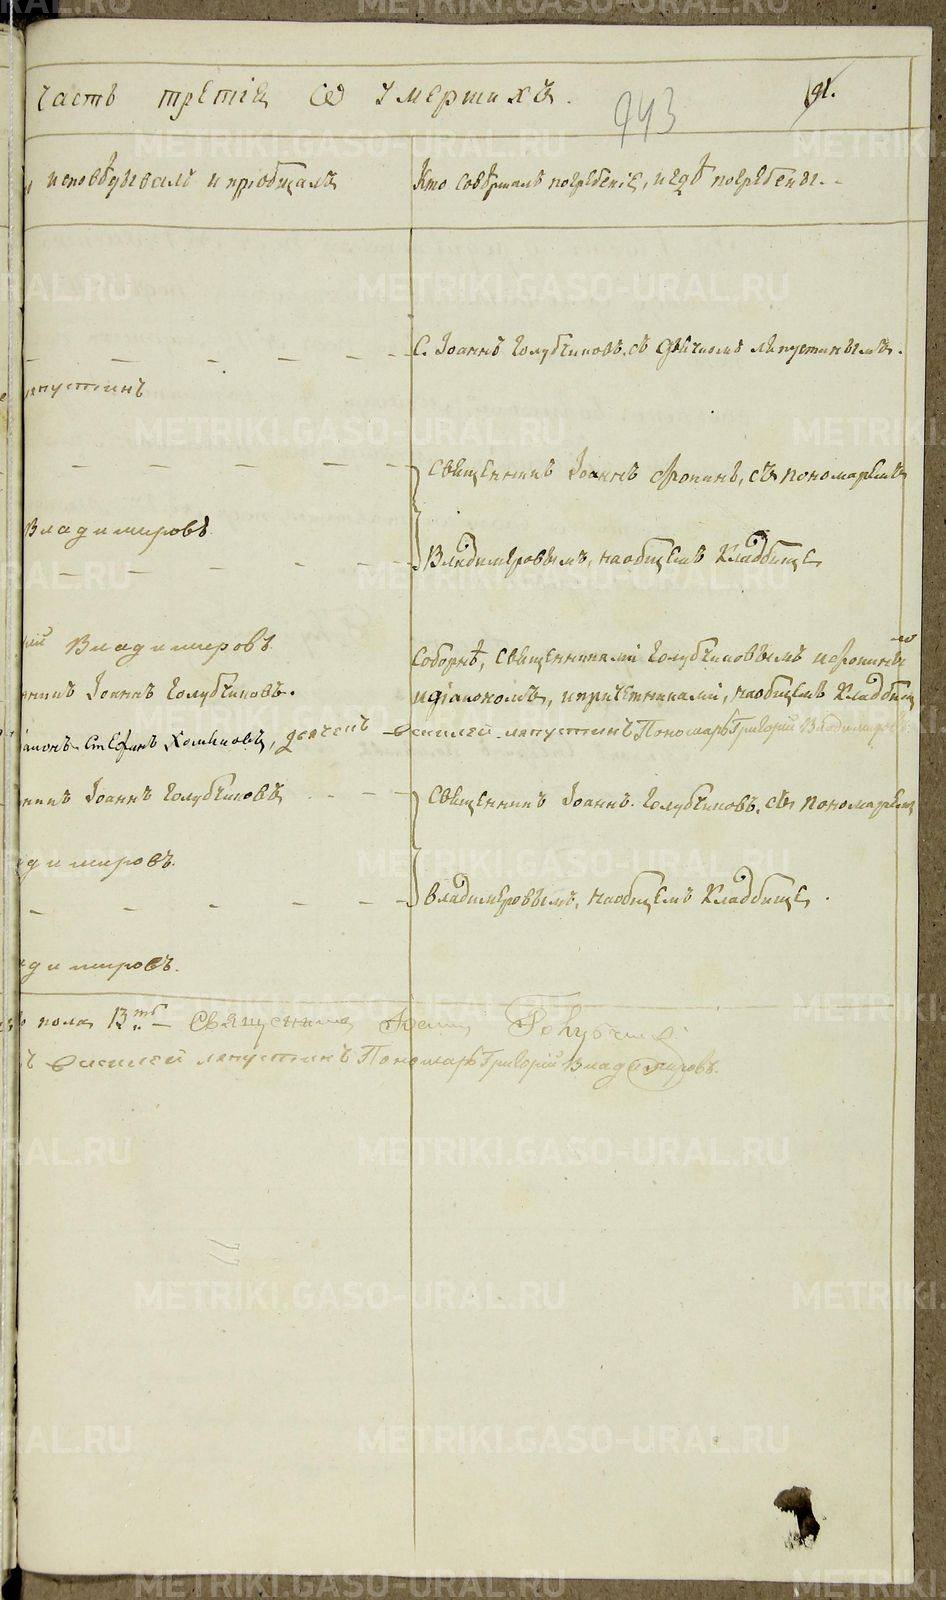 часть третія ѡ умершихъ. 943 91.
и исповѣдывалъ и пріобщалъ
Кто совѣршалъ погребеніе, и гдѣ погребены.
С. Іоаннъ Голубчиковъ. съ дьячкомъ Лапустинымъ.
апустинъ
Священникъ Іоаннъ Фронинъ, съ пономаремъ
Владимировъ
Владимеровымъ, на общемъ кладбище
ій Владимировъ
Соборнѣ, священниками Голубчиковымъ и Фрониным
нникъ Іоаннъ Голубчиковъ.
и діакономъ, и причетниками, на общемъ кладбищ
іаконъ Стефанъ Хомяковъ, дьячекъ василей лапустинъ Пономарь Григорій Владимировъ
нникъ Іоаннъ Голубчиковъ
Священникъ Іоаннъ Голубчиковъ, съ пономаремъ
адимировъ.
Владимеровымъ, на общемъ кладбище.
адимировъ.
пола 13 Священникъ Іоаннъ Голубчиков
василей лапустинъ Пономарь Григорій Владимировъ.
METRIKI.GASO-URAL.RU